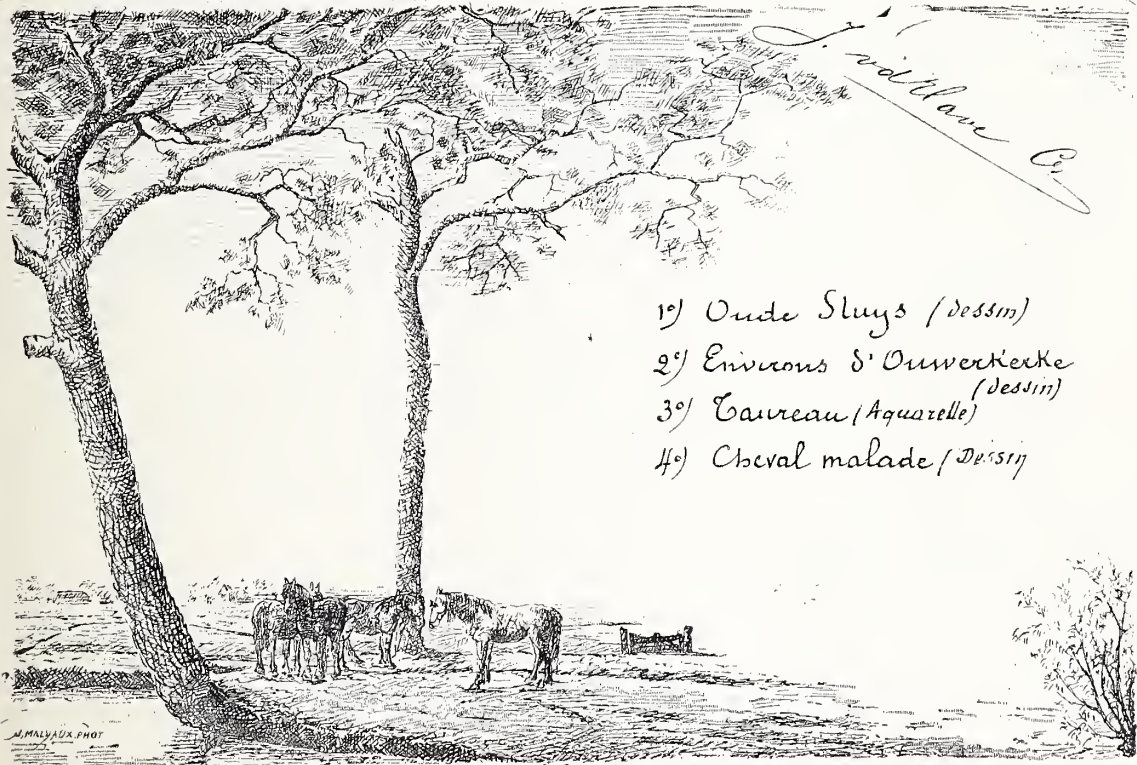 1º/ Oude Sluys (dessin)
2º/ Environs d'Ouwerkerke
(dessin)
3º/ Taureau (Aquarelle)
4º/ Cheval malade (Dessin
J. MALVAUX.PHOT